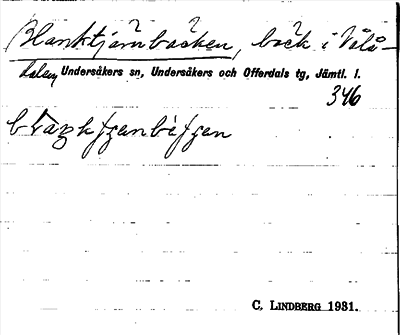 Blanktjärnbacken, back i Vålå-
dalen, Undersåkers sn, Undersåkers och Offerdals tg, Jämtl. l.
346
C. LINDBERG 1931.